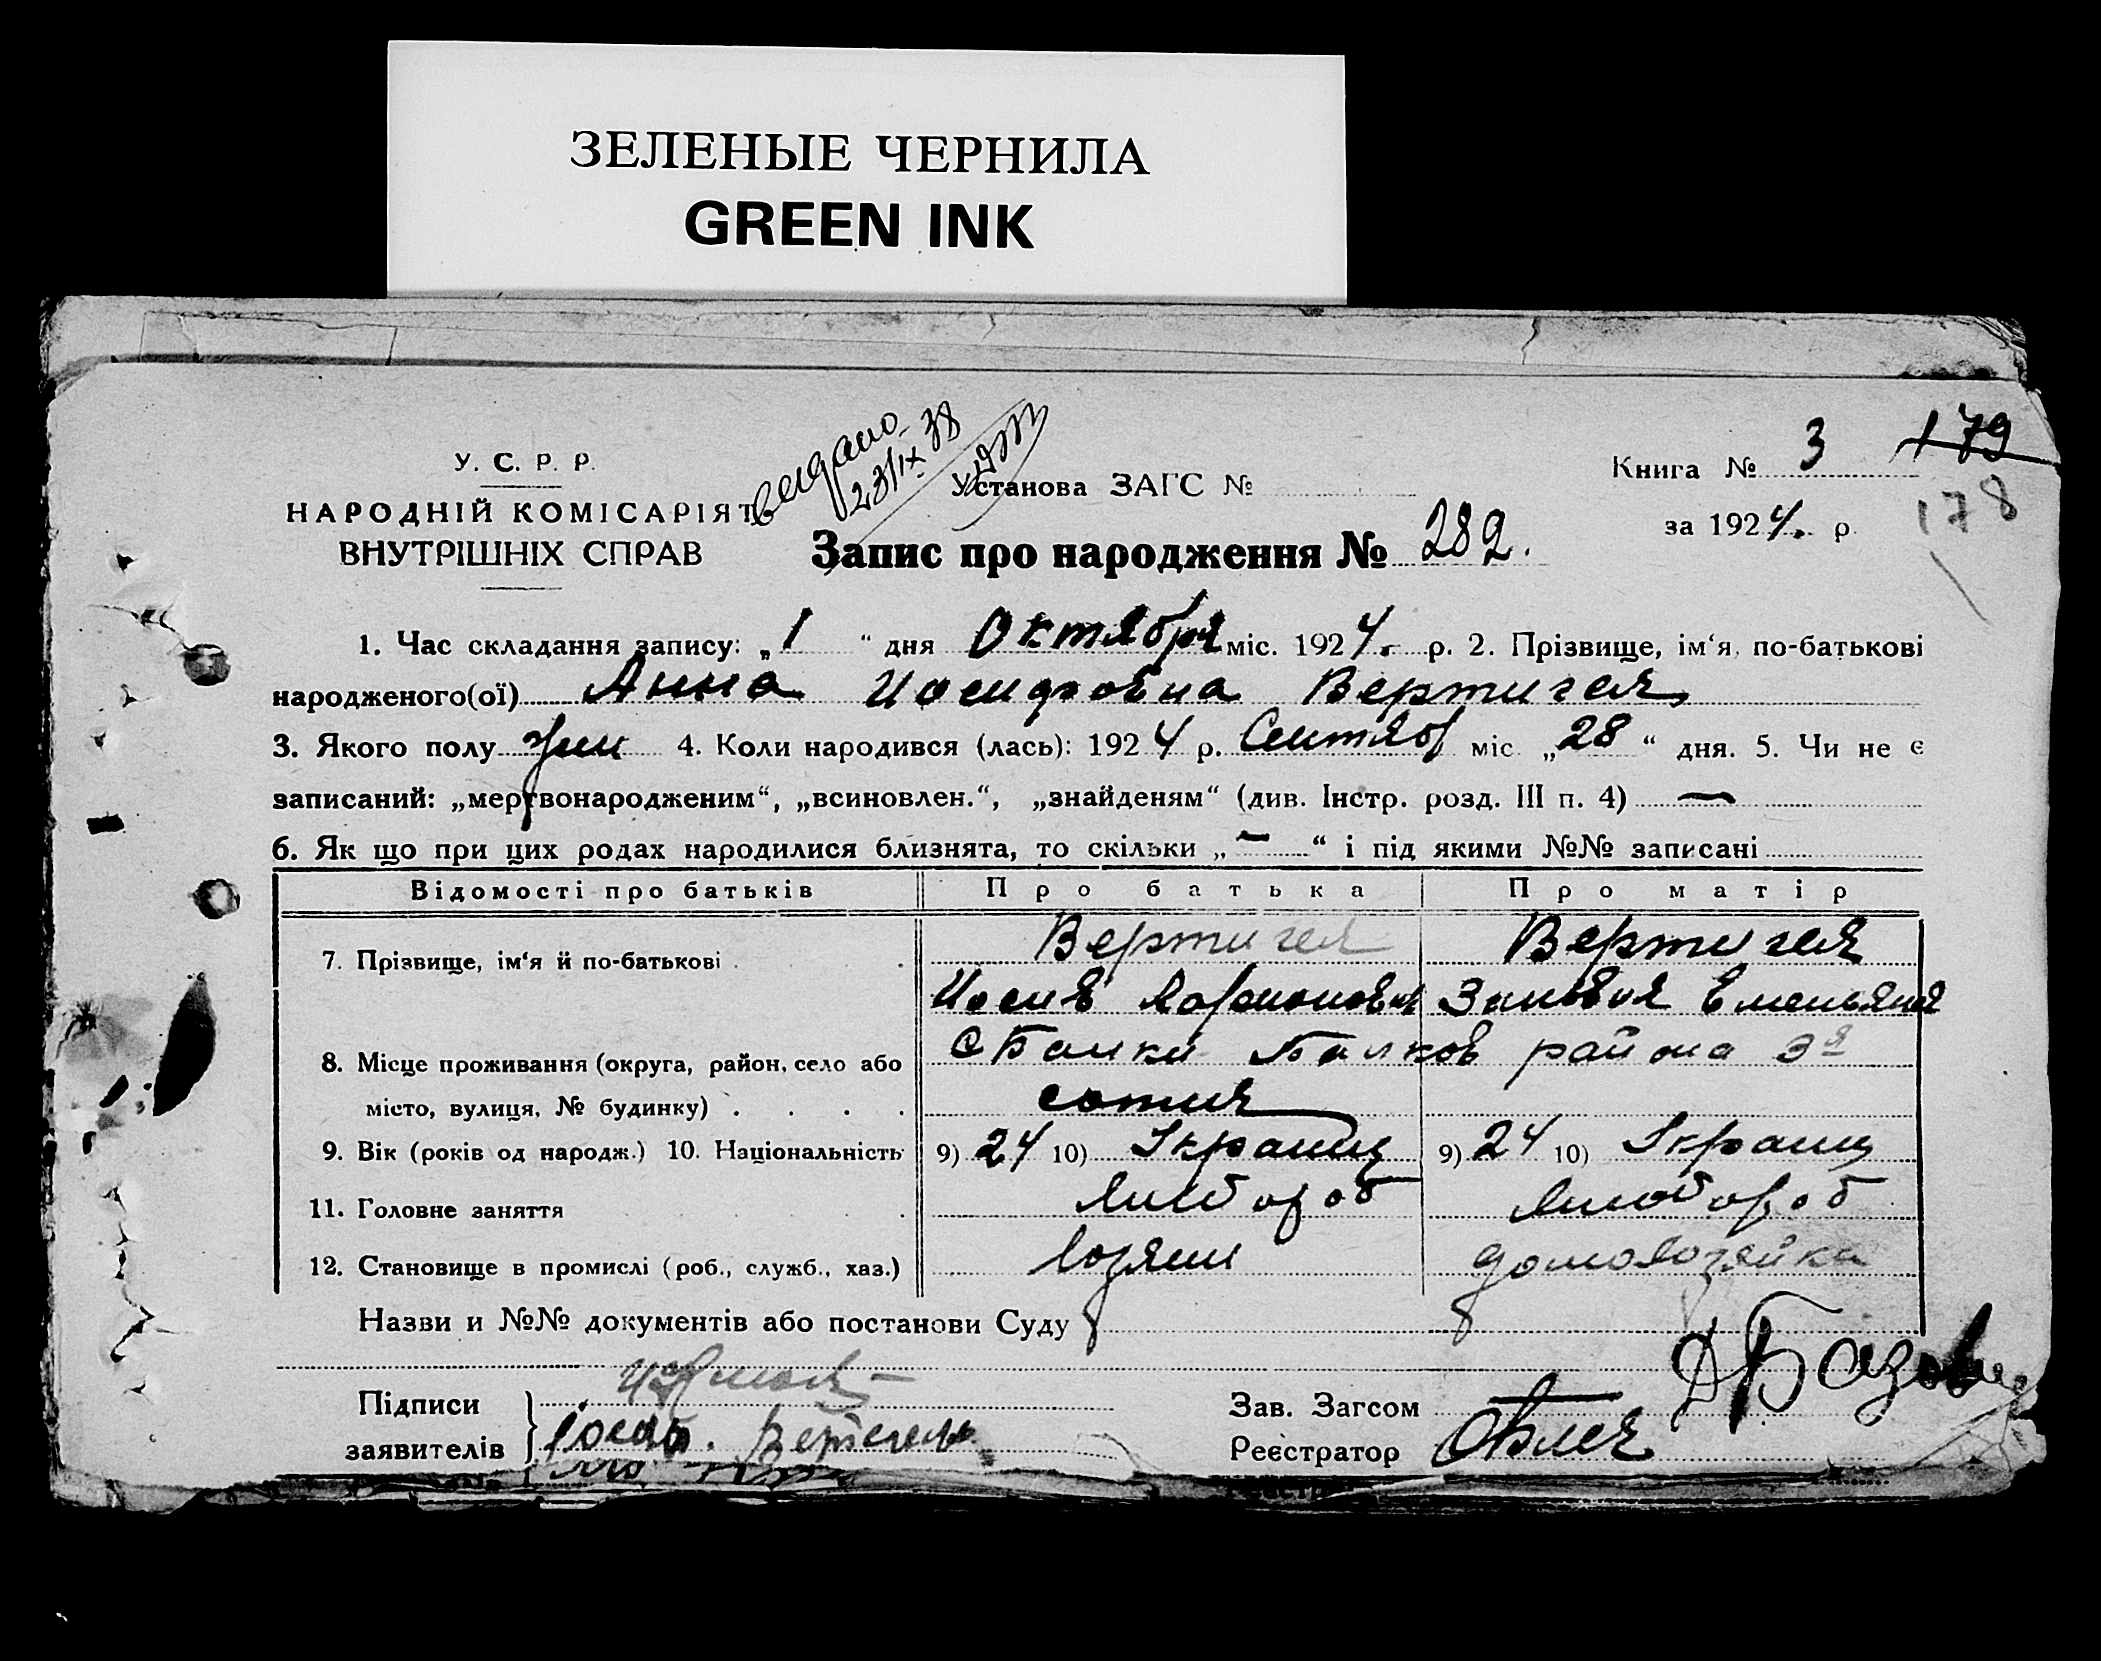 ЗЕЛЕНЫЕ ЧЕРНИЛА
GREEN INK
У. С. Р. Р.
НАРОДНІЙ КОМІСАРІЯТ
ВНУТРІШНІХ СПРАВ
видано
23/IX 38
Установа ЗАГС №
Книга № 3 179
за 1924. р. 178
Запис про народження № 282.
1. Час складання запису: „1“ дня Октября міс. 1924. р. 2. Прізвище, ім‘я, по-батькові
народженого(ої) Анна Иосифовна Вертигел
3. Якого полу жен 4. Коли народився (лась): 1924 р. Сентяб міс. „28“ дня. 5. Чи не є
записаний: „мертвонародженим“, „всиновлен.“, „знайденям“ (див. Інстр. розд. III п. 4) —
6. Як що при цих родах народилися близнята, то скільки „—“ і під якими №№ записані
Відомості про батьків Про батька Про матір
7. Прізвище, ім‘я й по-батькові Вертигел Вертигел
Иосиф
8. Місце проживання (округа, район, село або с Балки Балков района 3я
місто, вулиця, № будинку) сотня
9. Вік (років од народж.) 10. Національність 9) 24 10) Украинц 9) 24 10) Украинц
11. Головне заняття хлибороб хлибороб
12. Становище в промислі (роб., служб., хаз.) хозяин домохозяйка
Назви и №№ документів або постанови Суду
Підписи
заявителів
Зав. Загсом
Реєстратор